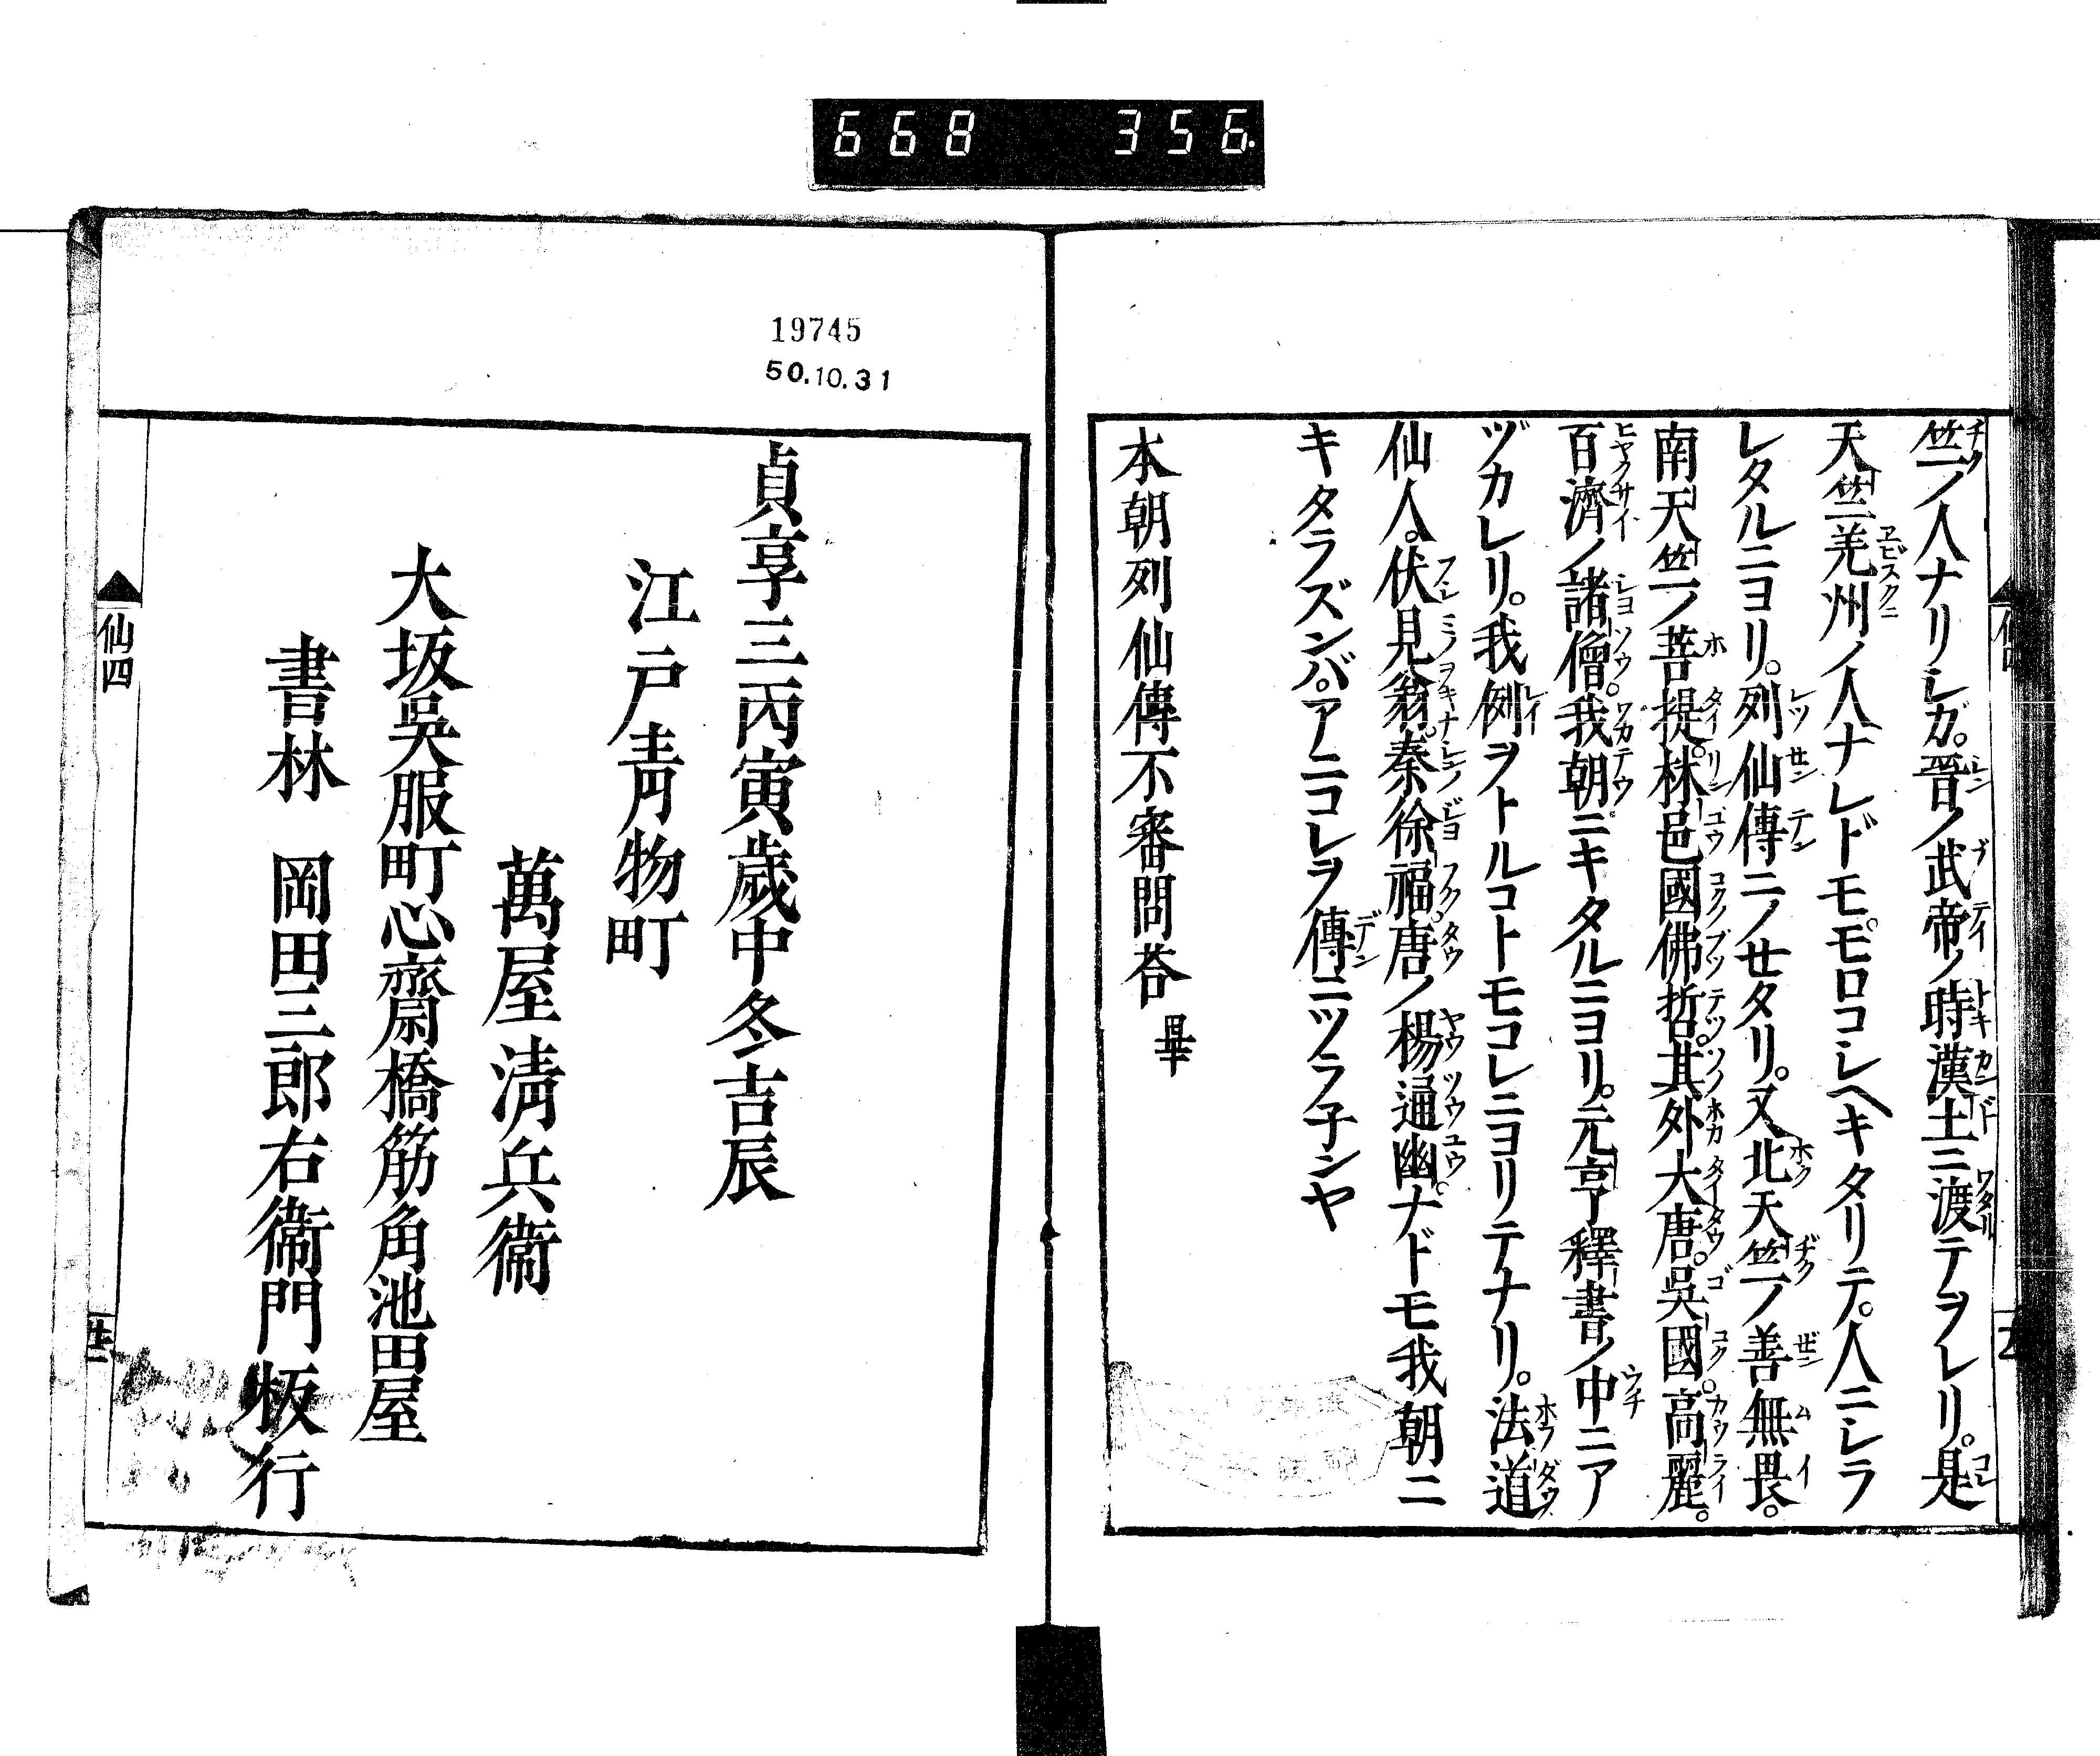 668 356.
竺ノ人ナリシガ。晋ノ武帝ノ時漢土ニ渡テヲレリ。是
天竺羌州ノ人ナレドモ。モロコシヘキタリテ。人ニシラ
レタルニヨリ。列仙傳ニノセタリ。又北天竺ノ善無畏。
南天竺ノ菩提。林邑國佛哲。其外大唐。呉國。高麗。
百濟ノ諸僧。我朝ニキタルニヨリ。元亨釋書ノ中ニア
ヅカレリ。我例ヲトルコトモコレニヨリテナリ。法道
仙人。伏見翁。秦徐福。唐ノ楊通幽。ナドモ我朝ニ
キタラズンバ。アニコレヲ傳ニツラ子ンヤ
本朝列仙傳不審問荅 畢
19745
50.10.31
貞享三丙寅歳中冬吉辰
江戸青物町
萬屋清兵衛
大坂呉服町心齋橋筋角池田屋
書林 岡田三郎右衛門板行
仙四